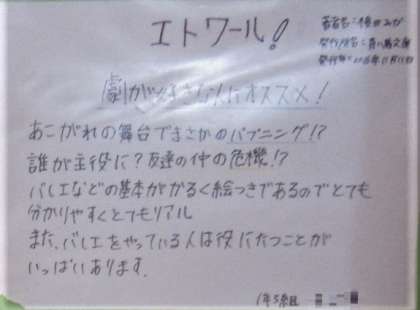 エトワール!
著者名:梅田みか
発行所名:青い鳥文庫
発行年:2016年11月15日
劇が好きな人にオススメ!
あこがれの舞台でまさかのハプニング!?
誰が主役に?友達の仲の危機!?
バレエなどの基本がかるく絵つきであるのでとても
分かりやすくとてもリアル
また、バレエをやっている人は役にたつことが
いっぱいあります.
1年5組